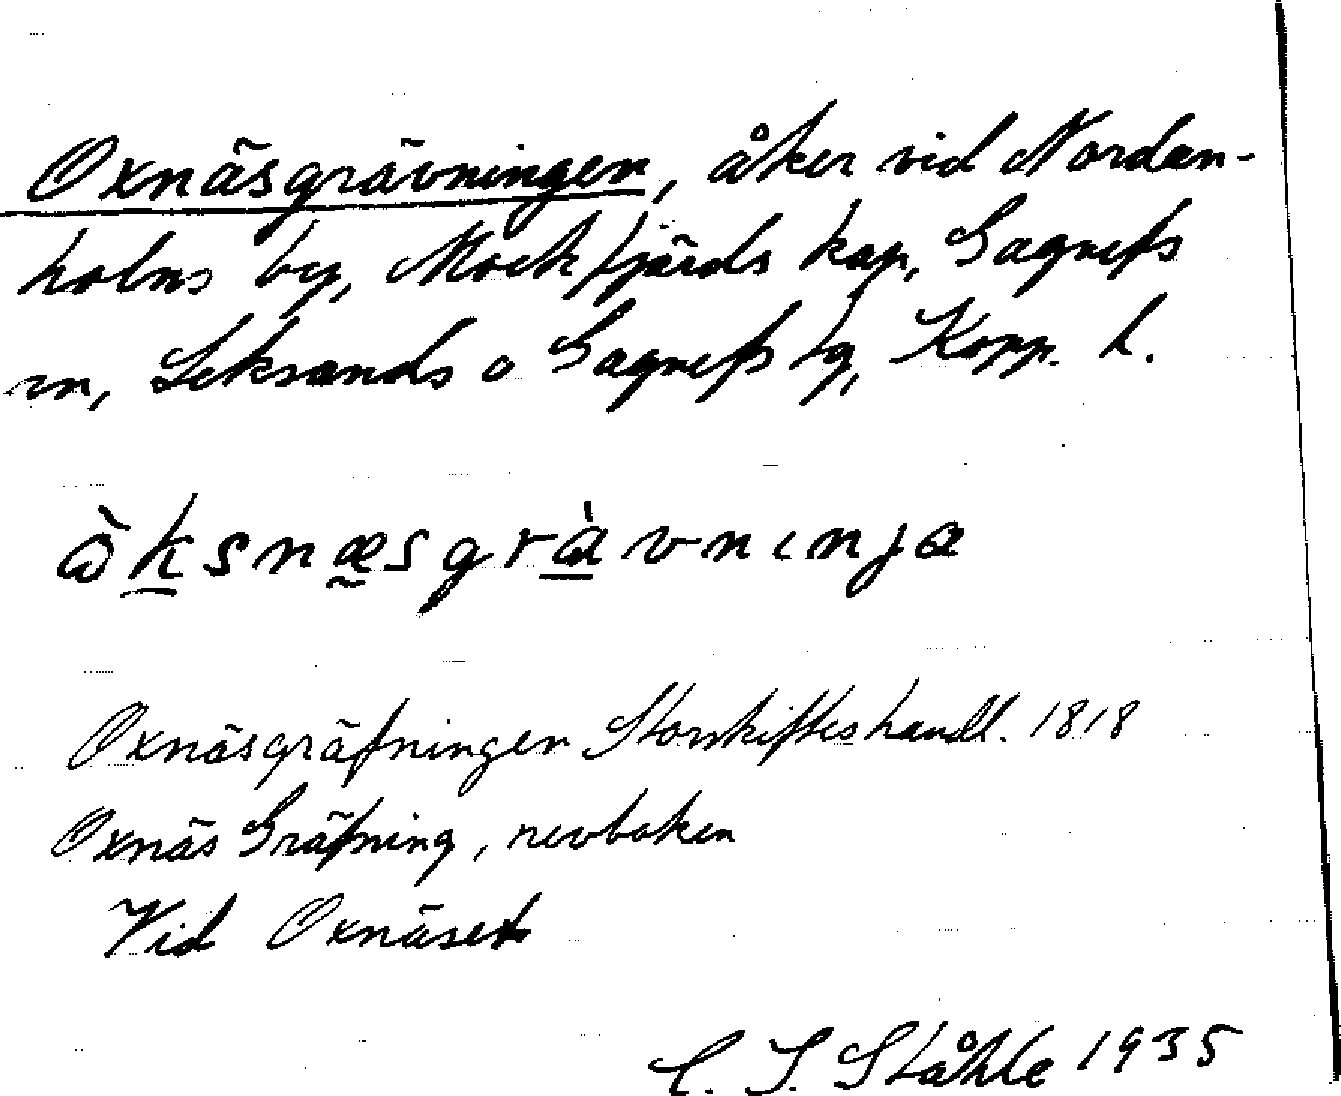 Oxnäsgrävningen, åker vid Nordan-
holns by, Mockfjärds kap, Gagnefs
sn, Leksands o Gagnefs tg, Kopp. l.
ò̀ksnæsgràvnɩnja
Oxnäsgräfningen Storskifteshandl. 1818
Oxnäs Gräfning, revboken
Vid Oxnäset
C. I. Ståhle 1935